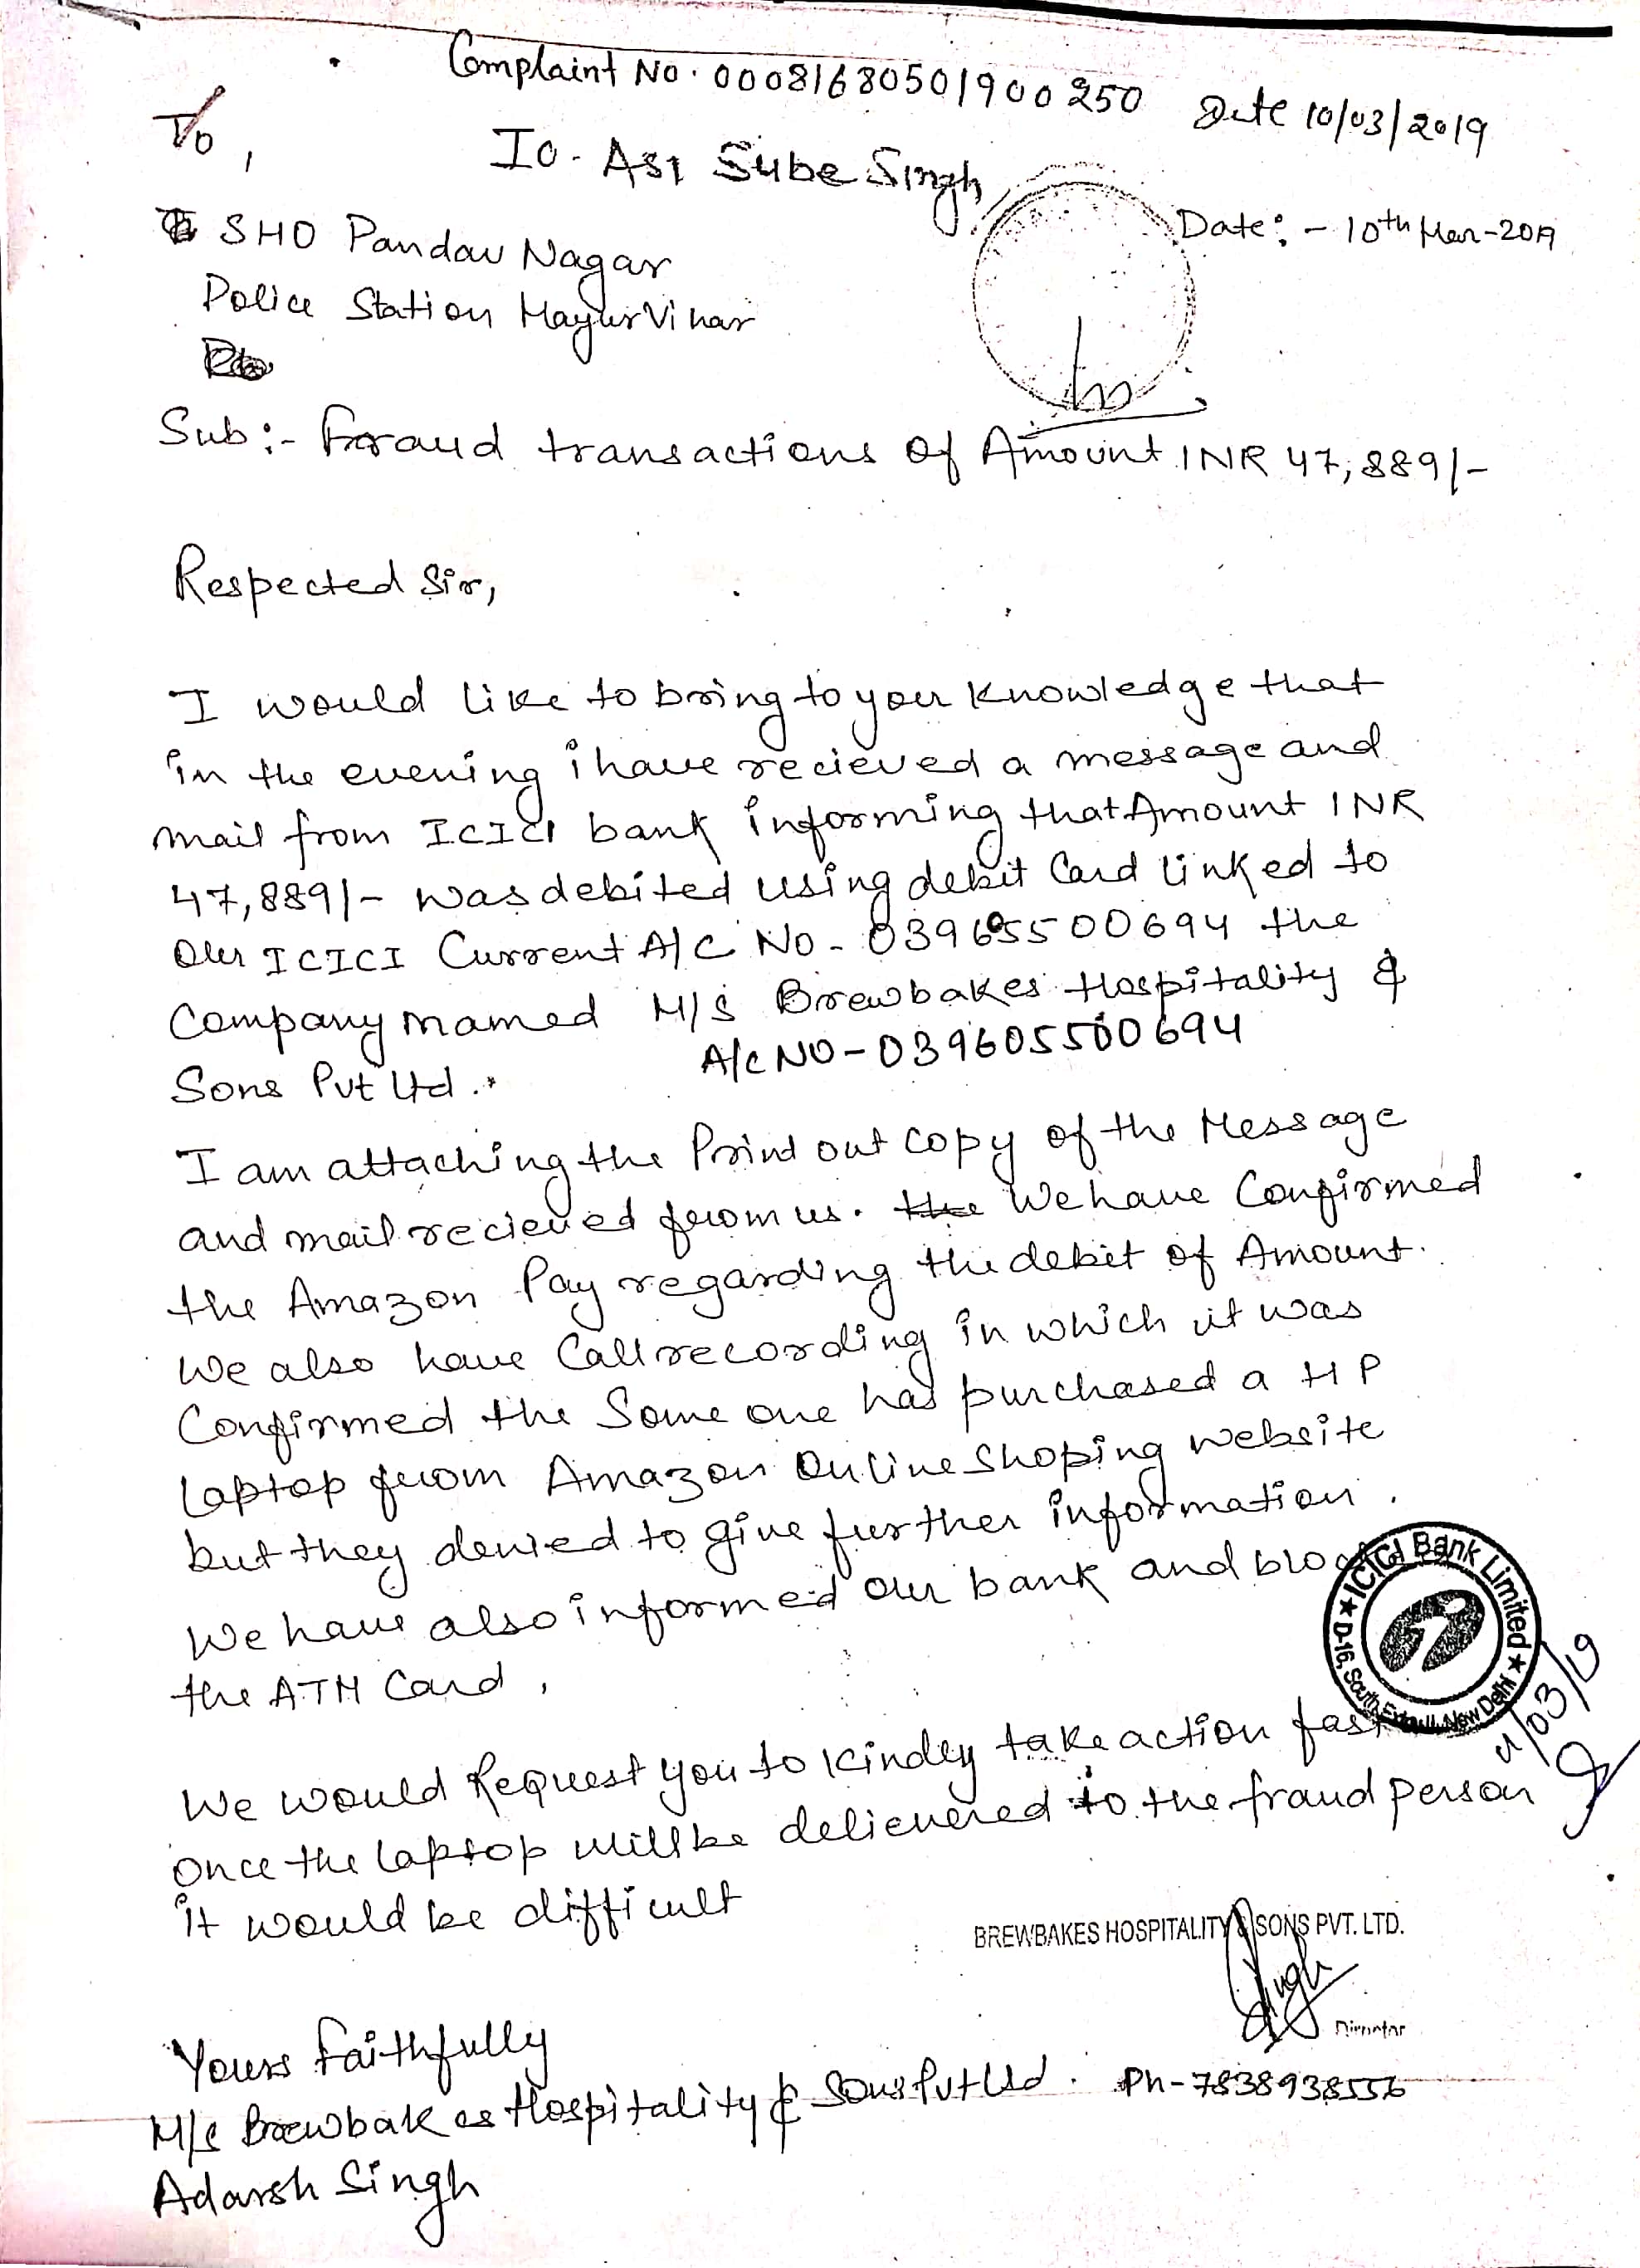 Complaint No. 00081680501900250 Date 10/03/2019
To,
IO - ASI Sube Singh
SHO Pandav Nagar
Date:- 10th Mar-2019
Police Station Mayur Vihar
Sub:- Fraud transactions of Amount INR 47,889/-
Respected Sir,
I would like to bring to your knowledge that
in the evening i have recieved a message and
mail from ICICI bank informing that Amount INR
47,889/- was debited using debit Card linked to
Our ICICI Current A/C No - 039605500694 the
Company named M/s Brewbakes Hospitality &
Sons Pvt Ltd. A/c NO - 039605500694
I am attaching the Print out copy of the Message
and mail recieved from us. the We have Confirmed
the Amazon Pay regarding the debit of Amount.
We also have Call recording in which it was
Confirmed the Some one has purchased a HP
laptop from Amazon Online Shoping website
but they denied to give further information.
We have also informed our bank and
the ATM Card,
ICICI Bank Limited
D-16, South New Delhi
/03/19
We would Request you to kindly take action fast
once the laptop will be delievered to the fraud person
it would be difficult
BREWBAKES HOSPITALITY & SONS PVT. LTD.
Singh
Director
Yours Faithfully
M/s Brewbakes Hospitality & Sons Pvt Ltd. Ph - 7838938556
Adarsh Singh